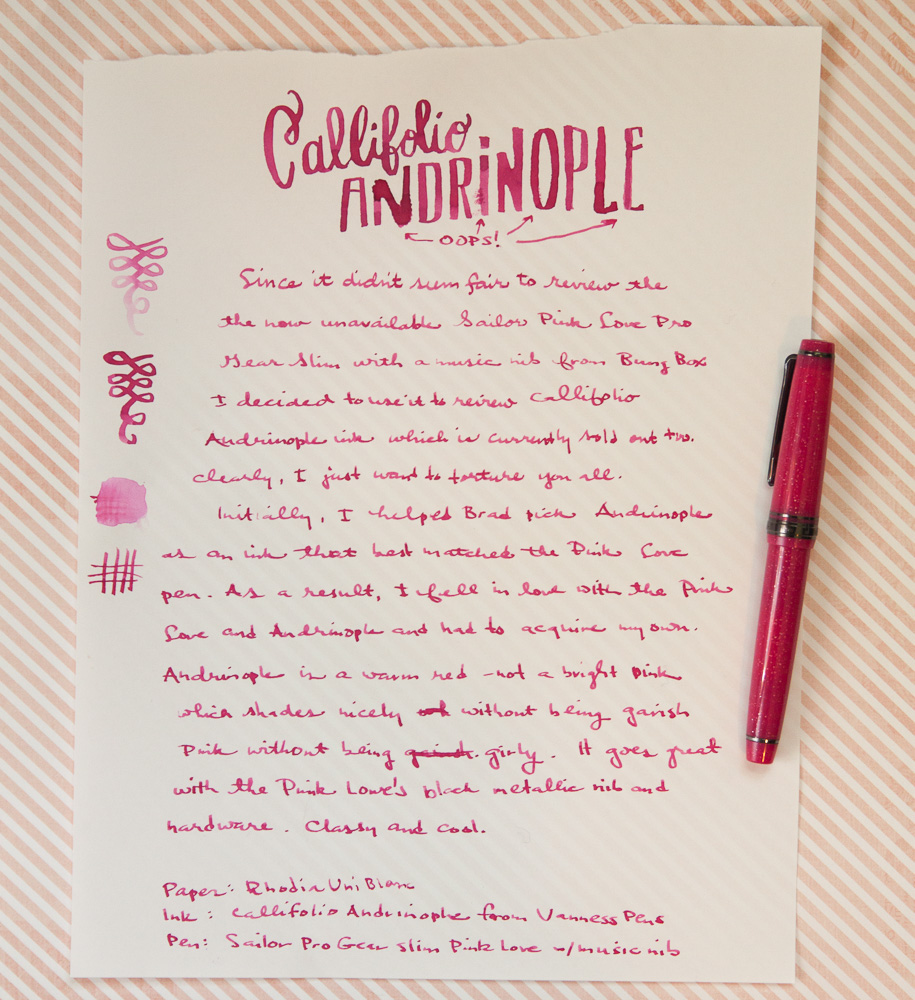 Callifolio
ANDRiNOPLE
OOPS!
Since it didn't seem fair to review the
the now unavailable Sailor Pink Love Pro
Gear Slim with a music nib from Bung Box
I decided to use it to review Callifolio
Andrinople ink which is currently sold out too.
Clearly, I just want to torture you all.
Initially, I helped Brad pick Andrinople
as an ink that best matched the Pink Love
pen. As a result, I fell in love with the Pink
Love and Andrinople and had to acquire my own.
Andrinople is a warm red - not a bright pink
which shades nicely without being garish
Pink without being garish girly. It goes great
with the Pink Love's black metallic nib and
hardware. Classy and cool.
Paper: Rhodia Uni Blanc
Ink: Callifolio Andrinople from Vanness Pens
Pen: Sailor Pro Gear slim Pink Love w/music nib